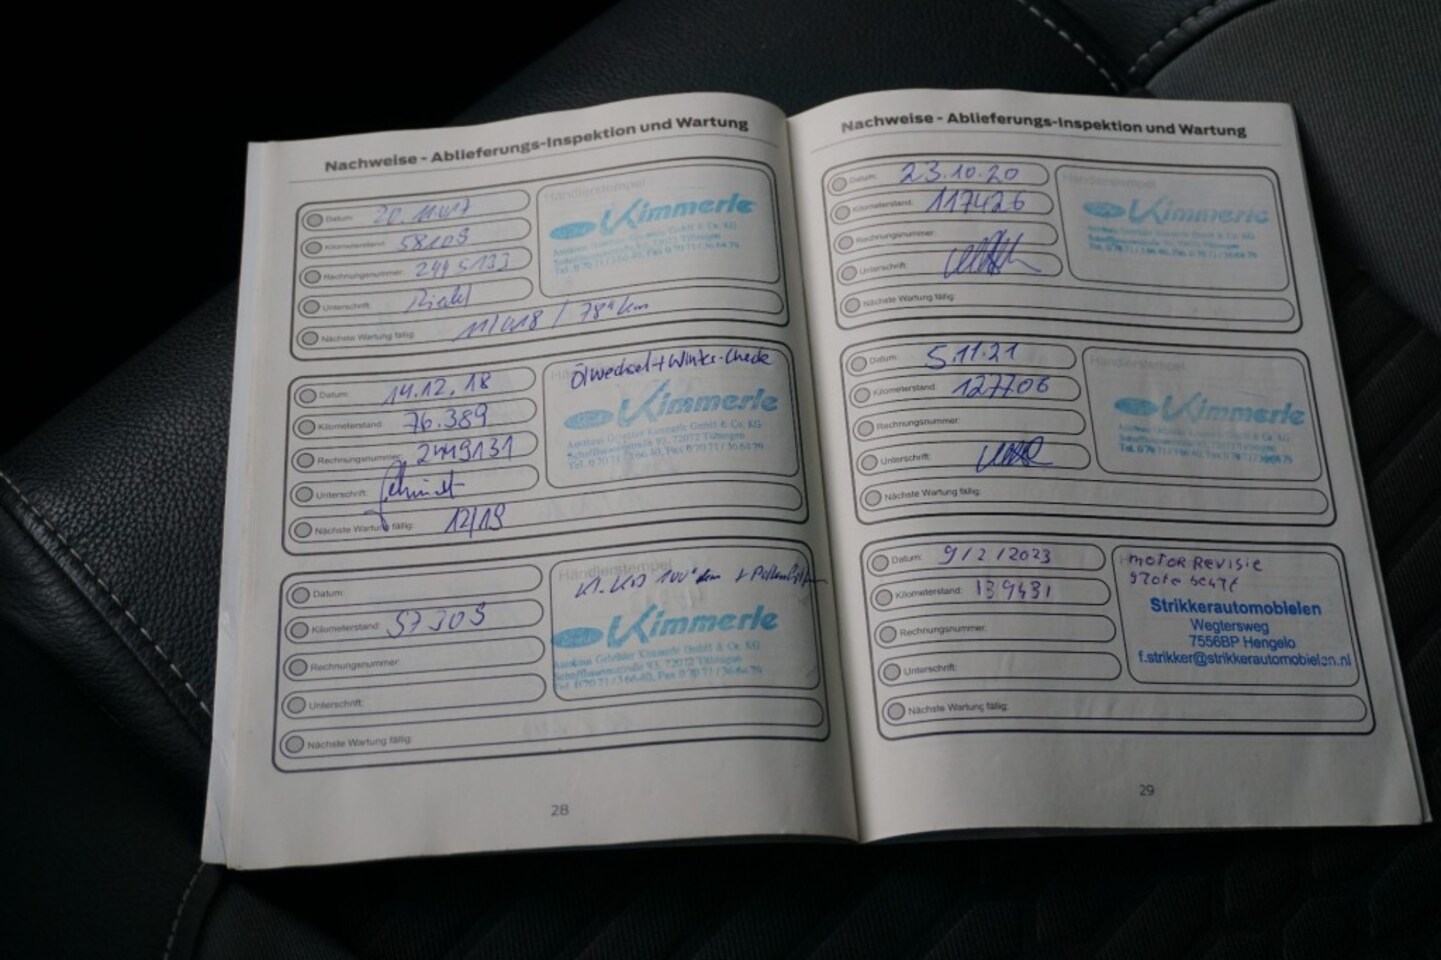 Nachweise - Ablieferungs-Inspektion und Wartung
Datum: 20.11.017
Kilometerstand: 58109
Rechnungsnummer: 2445133
Unterschrift:
Nächste Wartung fällig: 11/018 / 78 km
Händlerstempel
Kimmerle
Autohaus Gebrüder Kimmerle GmbH & Co. KG
Schaffhausenstraße 93, 72072 Tübingen
Tel. 0 70 71 / 3 66 40, Fax 0 70 71 / 36 64 79
Datum: 14.12.18
Kilometerstand: 76.389
Rechnungsnummer: 2449131
Unterschrift: Schmidt
Nächste Wartung fällig: 12/19
Ölwechsel + Winter-Check
Kimmerle
Autohaus Gebrüder Kimmerle GmbH & Co. KG
Schaffhausenstraße 93, 72072 Tübingen
Tel. 0 70 71 / 3 66 40, Fax 0 70 71 / 36 64 79
Datum:
Kilometerstand: 97309
Rechnungsnummer:
Unterschrift:
Nächste Wartung fällig:
Händlerstempel
Kimmerle
Autohaus Gebrüder Kimmerle GmbH & Co. KG
Schaffhausenstraße 93, 72072 Tübingen
Tel. 0 70 71 / 3 66 40, Fax 0 70 71 / 36 64 79
28
Nachweise - Ablieferungs-Inspektion und Wartung
Datum: 23.10.20
Kilometerstand: 117426
Rechnungsnummer:
Unterschrift:
Nächste Wartung fällig:
Händlerstempel
Kimmerle
Autohaus Gebrüder Kimmerle GmbH & Co. KG
Schaffhausenstraße 93, 72072 Tübingen
Tel. 0 70 71 / 3 66 40, Fax 0 70 71 / 36 64 79
Datum: 5.11.21
Kilometerstand: 127706
Rechnungsnummer:
Unterschrift:
Nächste Wartung fällig:
Händlerstempel
Kimmerle
Autohaus Gebrüder Kimmerle GmbH & Co. KG
Schaffhausenstraße 93, 72072 Tübingen
Tel. 0 70 71 / 3 66 40, Fax 0 70 71 / 36 64 79
Datum: 9/2/2023
Kilometerstand: 139431
Rechnungsnummer:
Unterschrift:
Nächste Wartung fällig:
MOTOR REVISIE
grote beurt
Strikkerautomobielen
Wegtersweg
7556BP Hengelo
f.strikker@strikkerautomobielen.nl
29